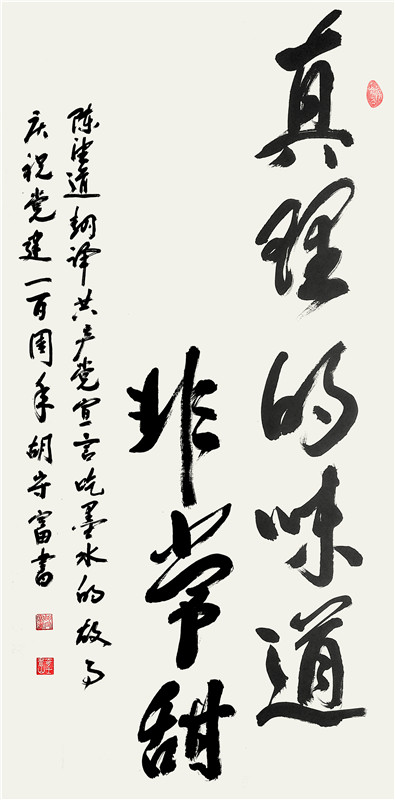 真理的味道
非常甜
陈望道翻译共产党宣言吃墨水的故事
庆祝党建一百周年胡守富书